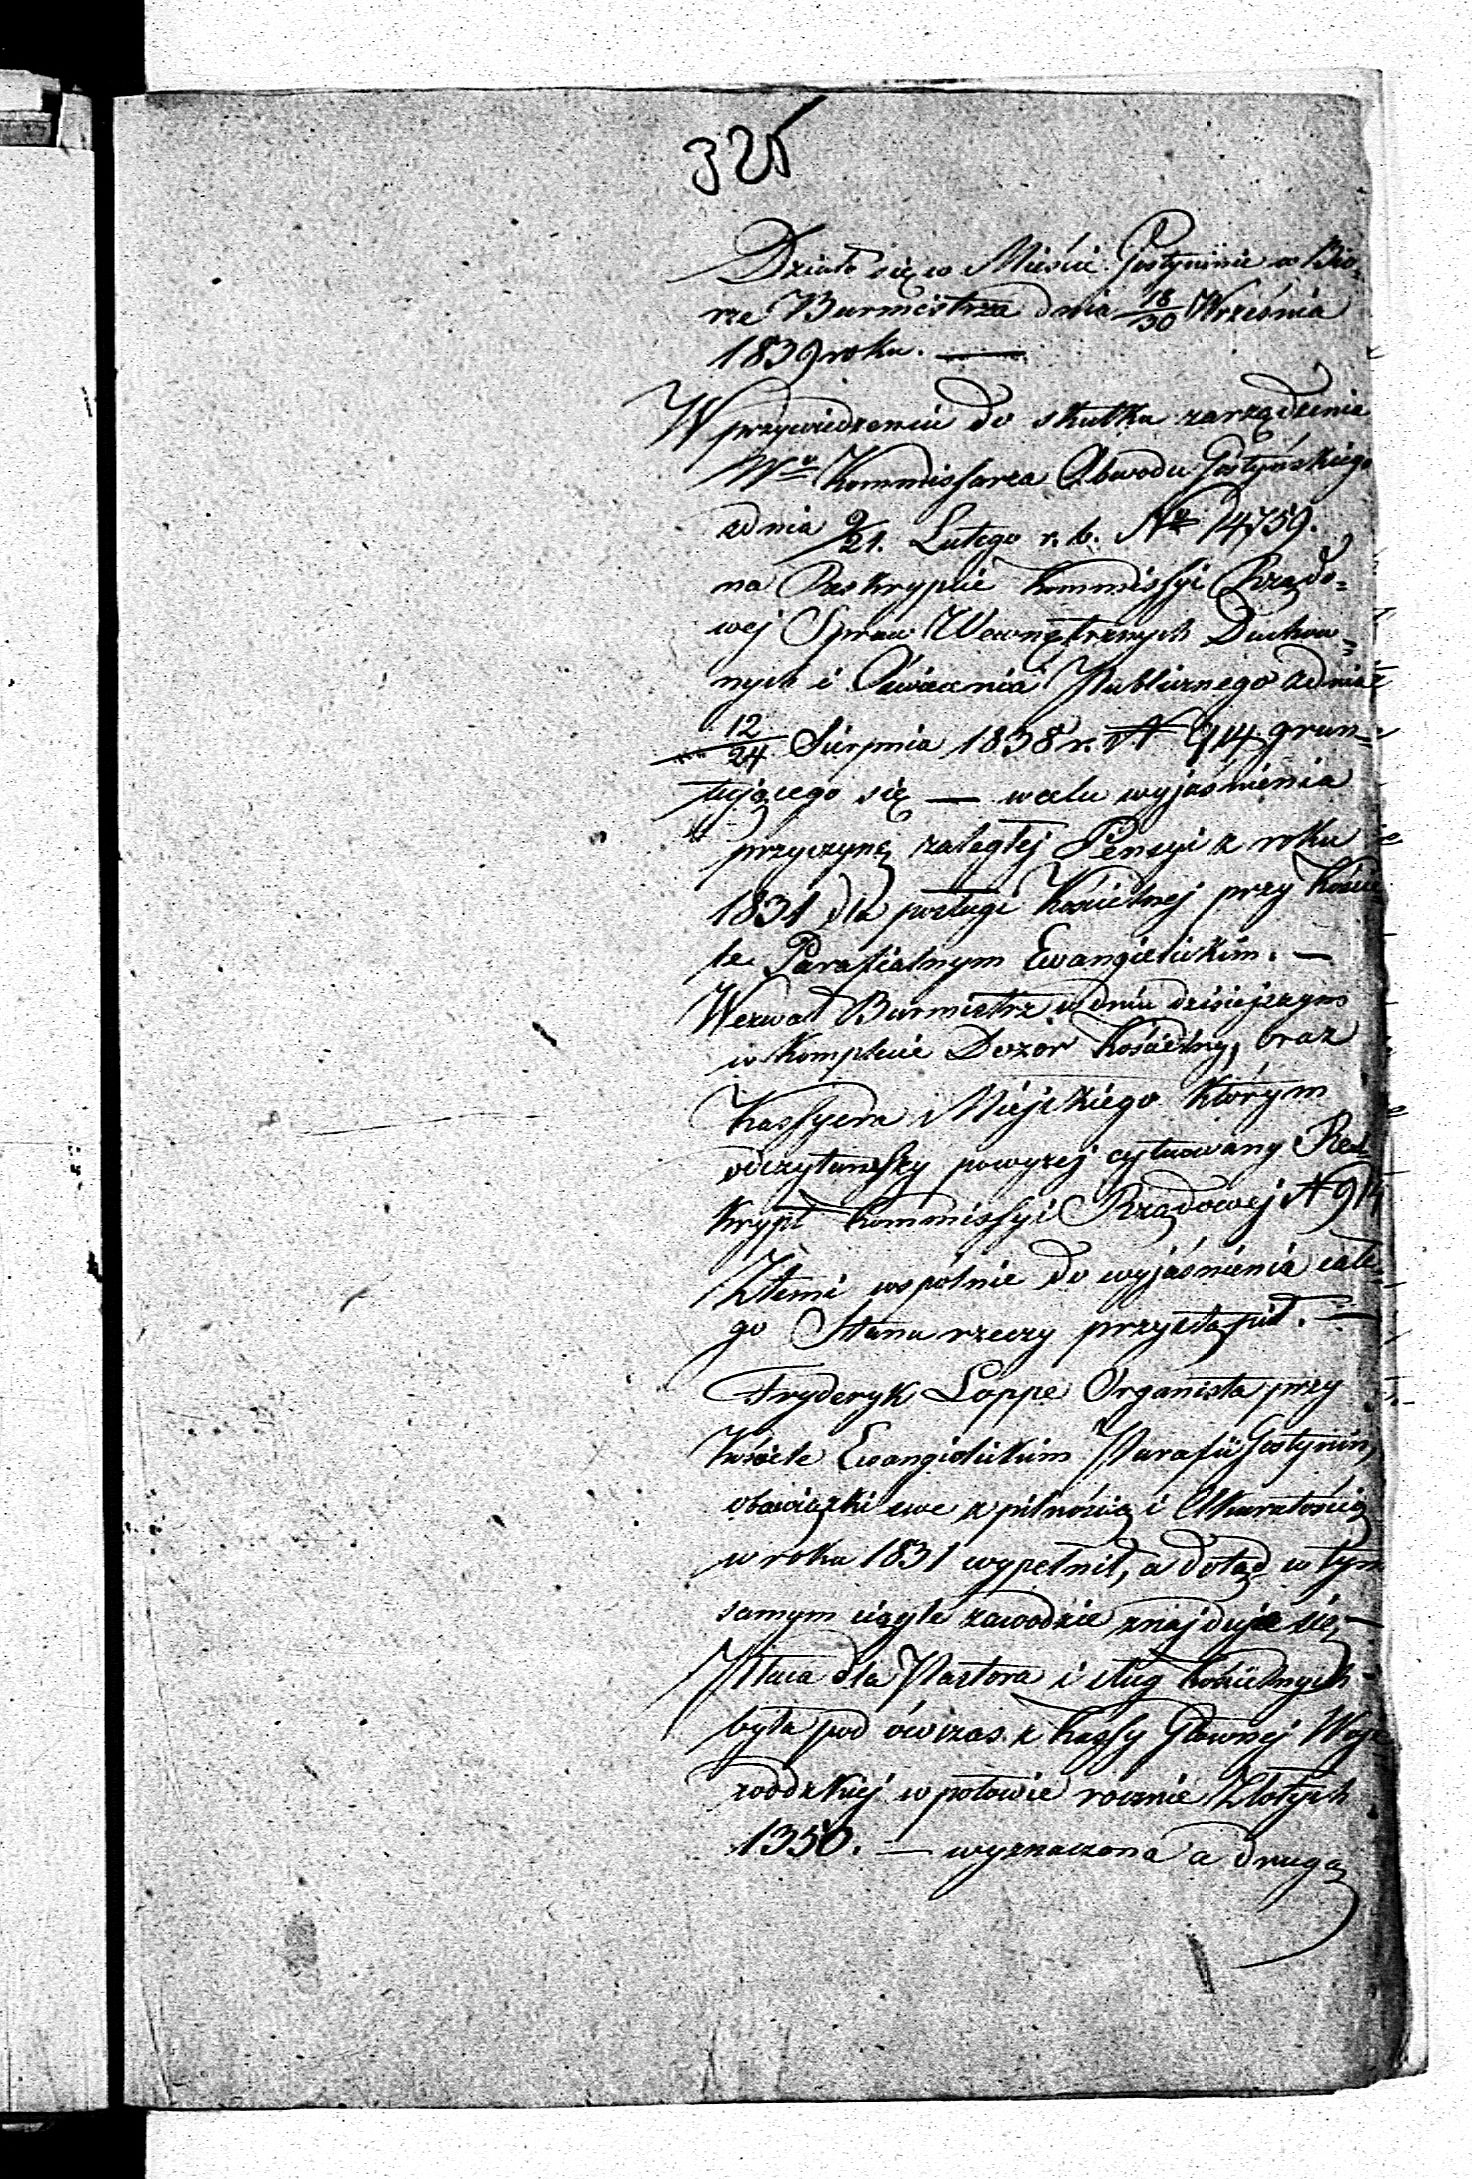 325
Działo się w Mieście Gostyninie w Biu=
rze Burmistrza dnia 18/30 Września
1839 roku. —
W przywiedzeniu do skutku zarządzenia
Wo Kommissarza Obwodu Gostyńskiego
z dnia 9/21. Lutego r. b. No 14759.
na Reskrypcie Kommissyi Rządo=
wej Spraw Wewnętrznych Duchow=
nych i Oświecenia Publicznego z dnia
12/24 Sierpnia 1838 r. N 914 grun=
tującego się — w celu wyjaśnienia
przyczynę zaległej Pensyi z roku
1831 dla posługi Kościelnej przy Kościė
le Parafialnym Ewangielickim. —
Wezwał Burmistrz w dniu dzisiejszym
w Komplecie Dozór Kościelny, oraz
Kassyera Miejskiego którym
odczytawszy powyżej cytowany Res
krypt Kommissyi Rządowej N 914
Ztemi wspólnie do wyjaśnienia całe=
go Stanu rzeczy przystąpił. —
Fryderyk Loppe Organista przy
Kościele Ewangielickim Parafii Gostynin,
obowiązki swe z pilnością i Akuratością
w roku 1831 wypełnił, a dotąd w tym
samym ciągle zawodzie znajduje się, —
Płaca dla Pastora i sług Kościelnych
była pod ówczas z Kassy Głównej Woje
wodzkiej w połowie rocznie Złotych
1350. — wyznaczona a druga